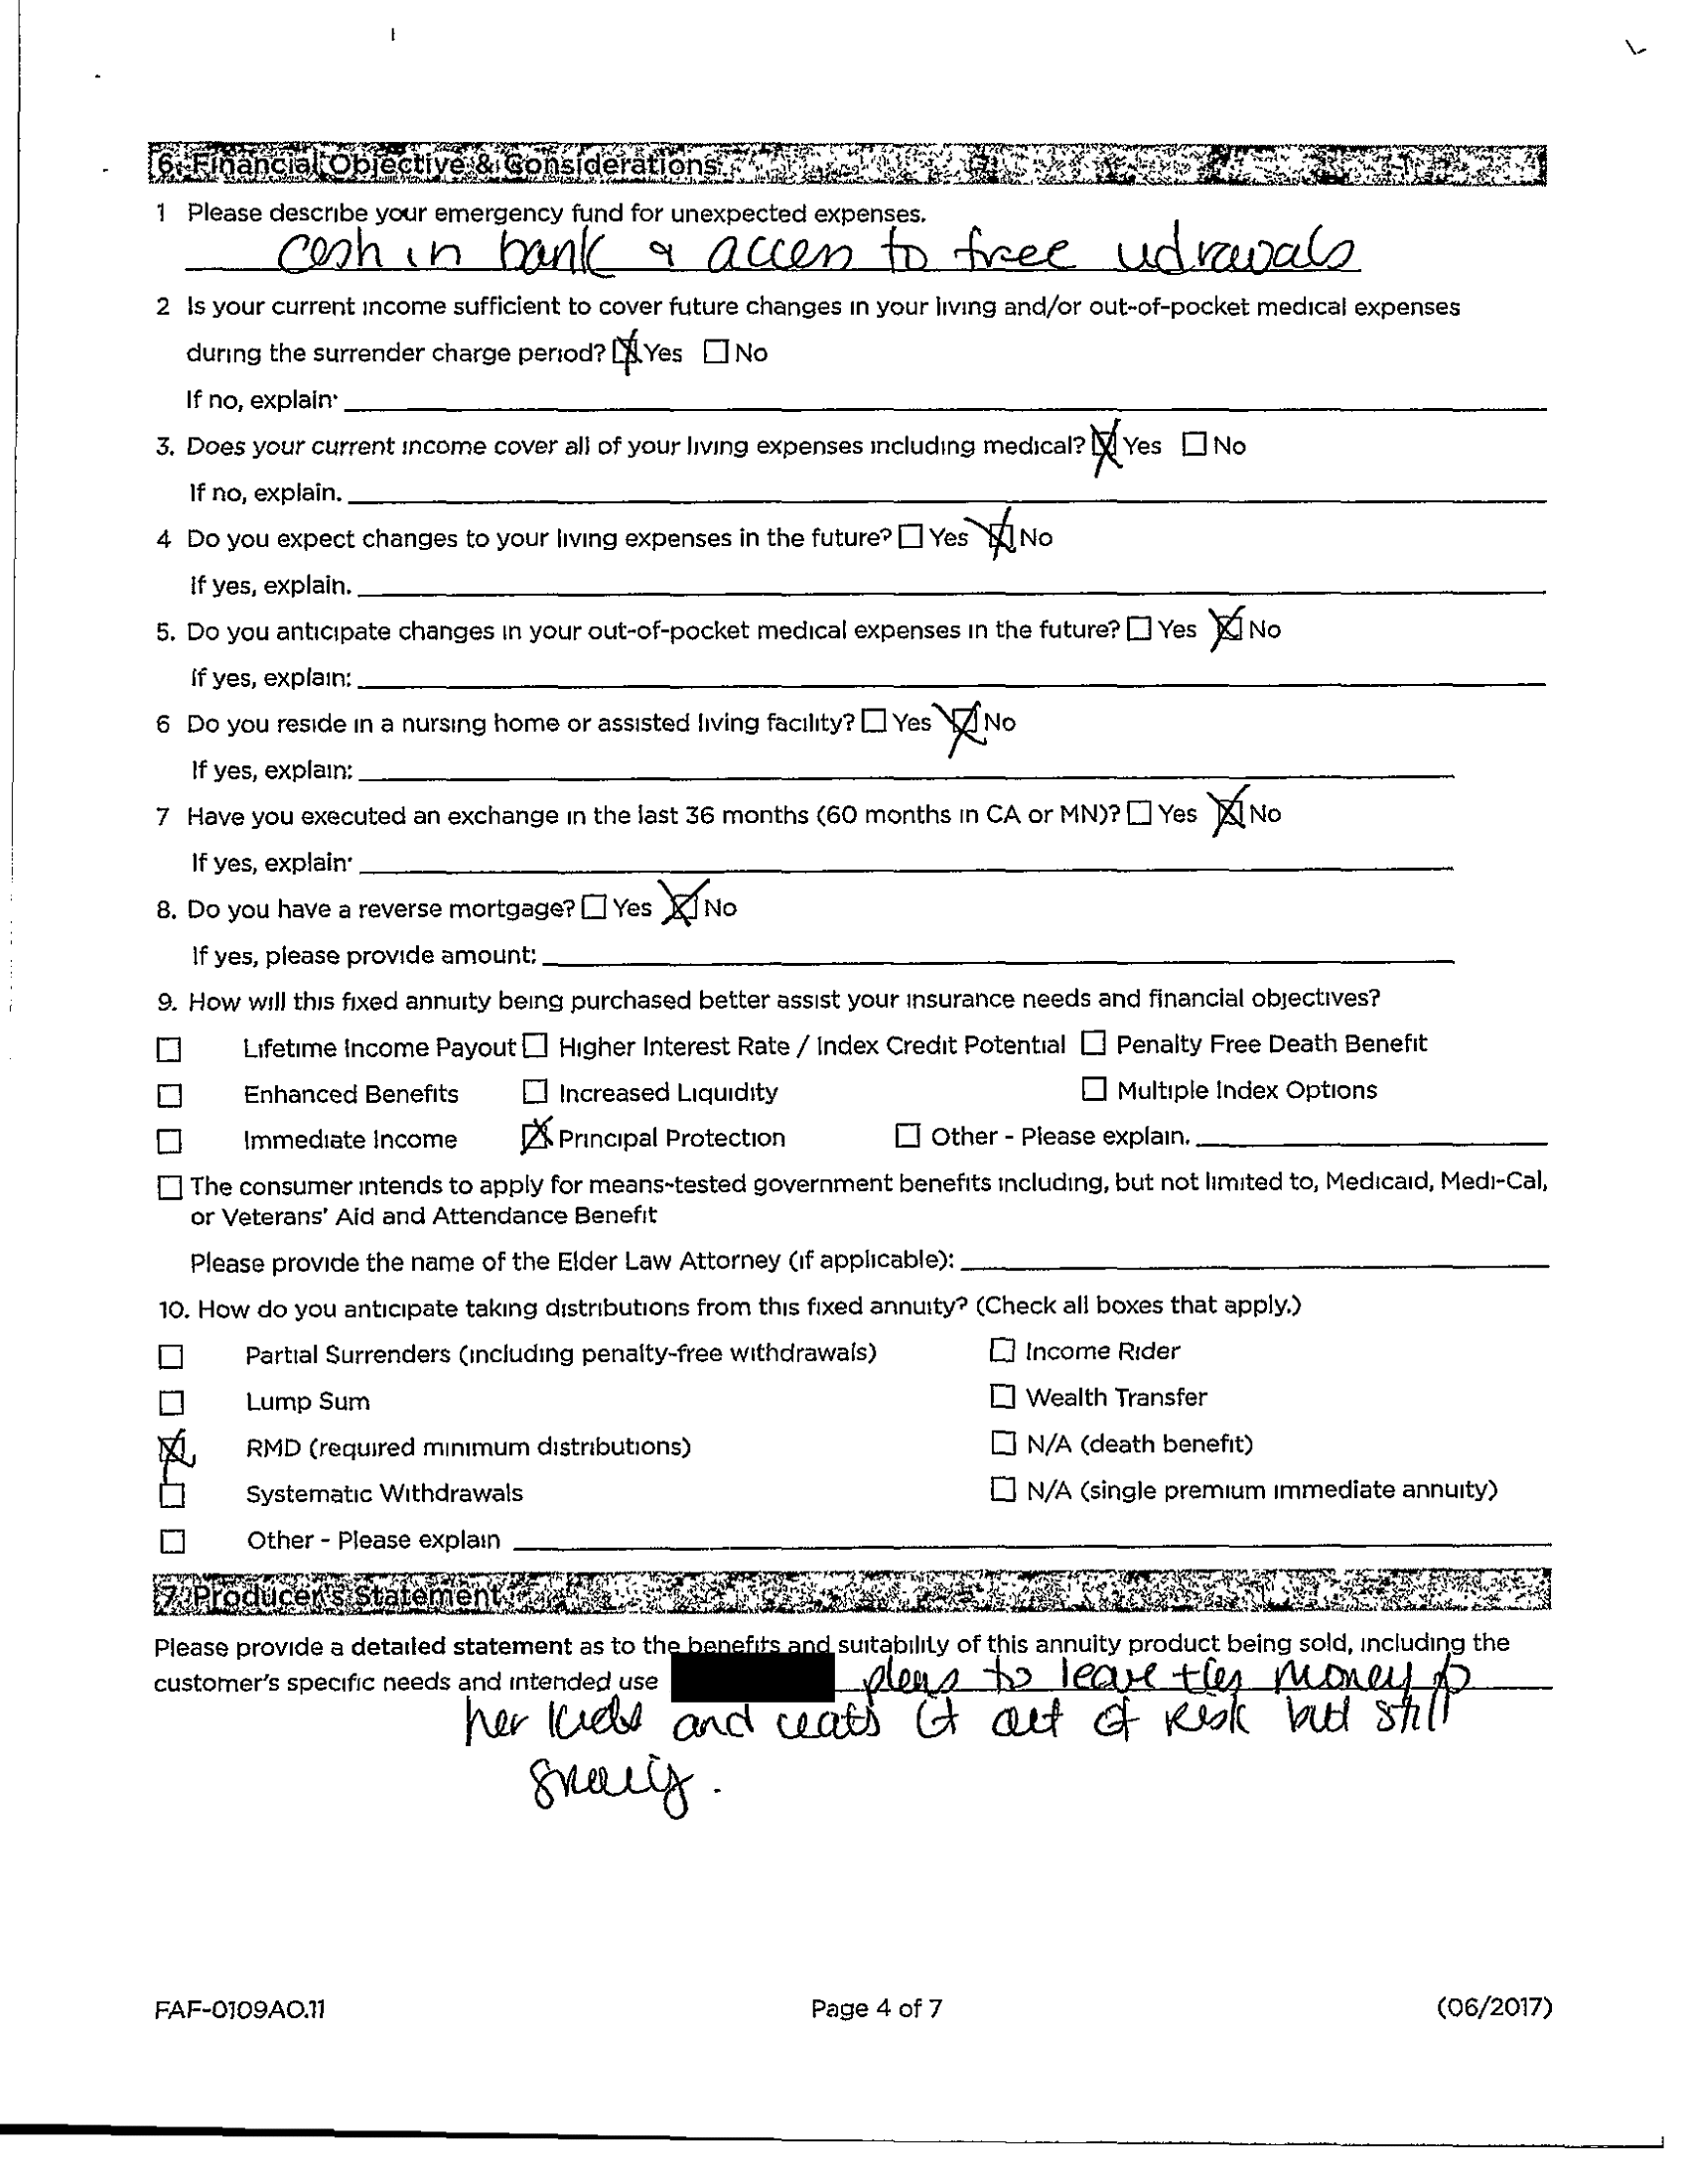 6. Financial Objective & Considerations
1 Please describe your emergency fund for unexpected expenses.
cash in bank & access to free wdrawals
2 Is your current income sufficient to cover future changes in your living and/or out-of-pocket medical expenses
during the surrender charge period? ☒ Yes ☐ No
If no, explain:
3. Does your current income cover all of your living expenses including medical? ☒ Yes ☐ No
If no, explain.
4 Do you expect changes to your living expenses in the future? ☐ Yes ☒ No
If yes, explain.
5. Do you anticipate changes in your out-of-pocket medical expenses in the future? ☐ Yes ☒ No
If yes, explain:
6 Do you reside in a nursing home or assisted living facility? ☐ Yes ☒ No
If yes, explain:
7 Have you executed an exchange in the last 36 months (60 months in CA or MN)? ☐ Yes ☒ No
If yes, explain:
8. Do you have a reverse mortgage? ☐ Yes ☒ No
If yes, please provide amount:
9. How will this fixed annuity being purchased better assist your insurance needs and financial objectives?
☐ Lifetime Income Payout ☐ Higher Interest Rate / Index Credit Potential ☐ Penalty Free Death Benefit
☐ Enhanced Benefits ☐ Increased Liquidity ☐ Multiple Index Options
☐ Immediate Income ☒ Principal Protection ☐ Other - Please explain.
☐ The consumer intends to apply for means-tested government benefits including, but not limited to, Medicaid, Medi-Cal,
or Veterans' Aid and Attendance Benefit
Please provide the name of the Elder Law Attorney (if applicable):
10. How do you anticipate taking distributions from this fixed annuity? (Check all boxes that apply.)
☐ Partial Surrenders (including penalty-free withdrawals) ☐ Income Rider
☐ Lump Sum ☐ Wealth Transfer
☒ RMD (required minimum distributions) ☐ N/A (death benefit)
☐ Systematic Withdrawals ☐ N/A (single premium immediate annuity)
☐ Other - Please explain
7. Producer's Statement
Please provide a detailed statement as to the benefits and suitability of this annuity product being sold, including the
customer's specific needs and intended use plans to leave this money to
her kids and wants it out of Risk but still
FAF-0109AO.11 Page 4 of 7 (06/2017)